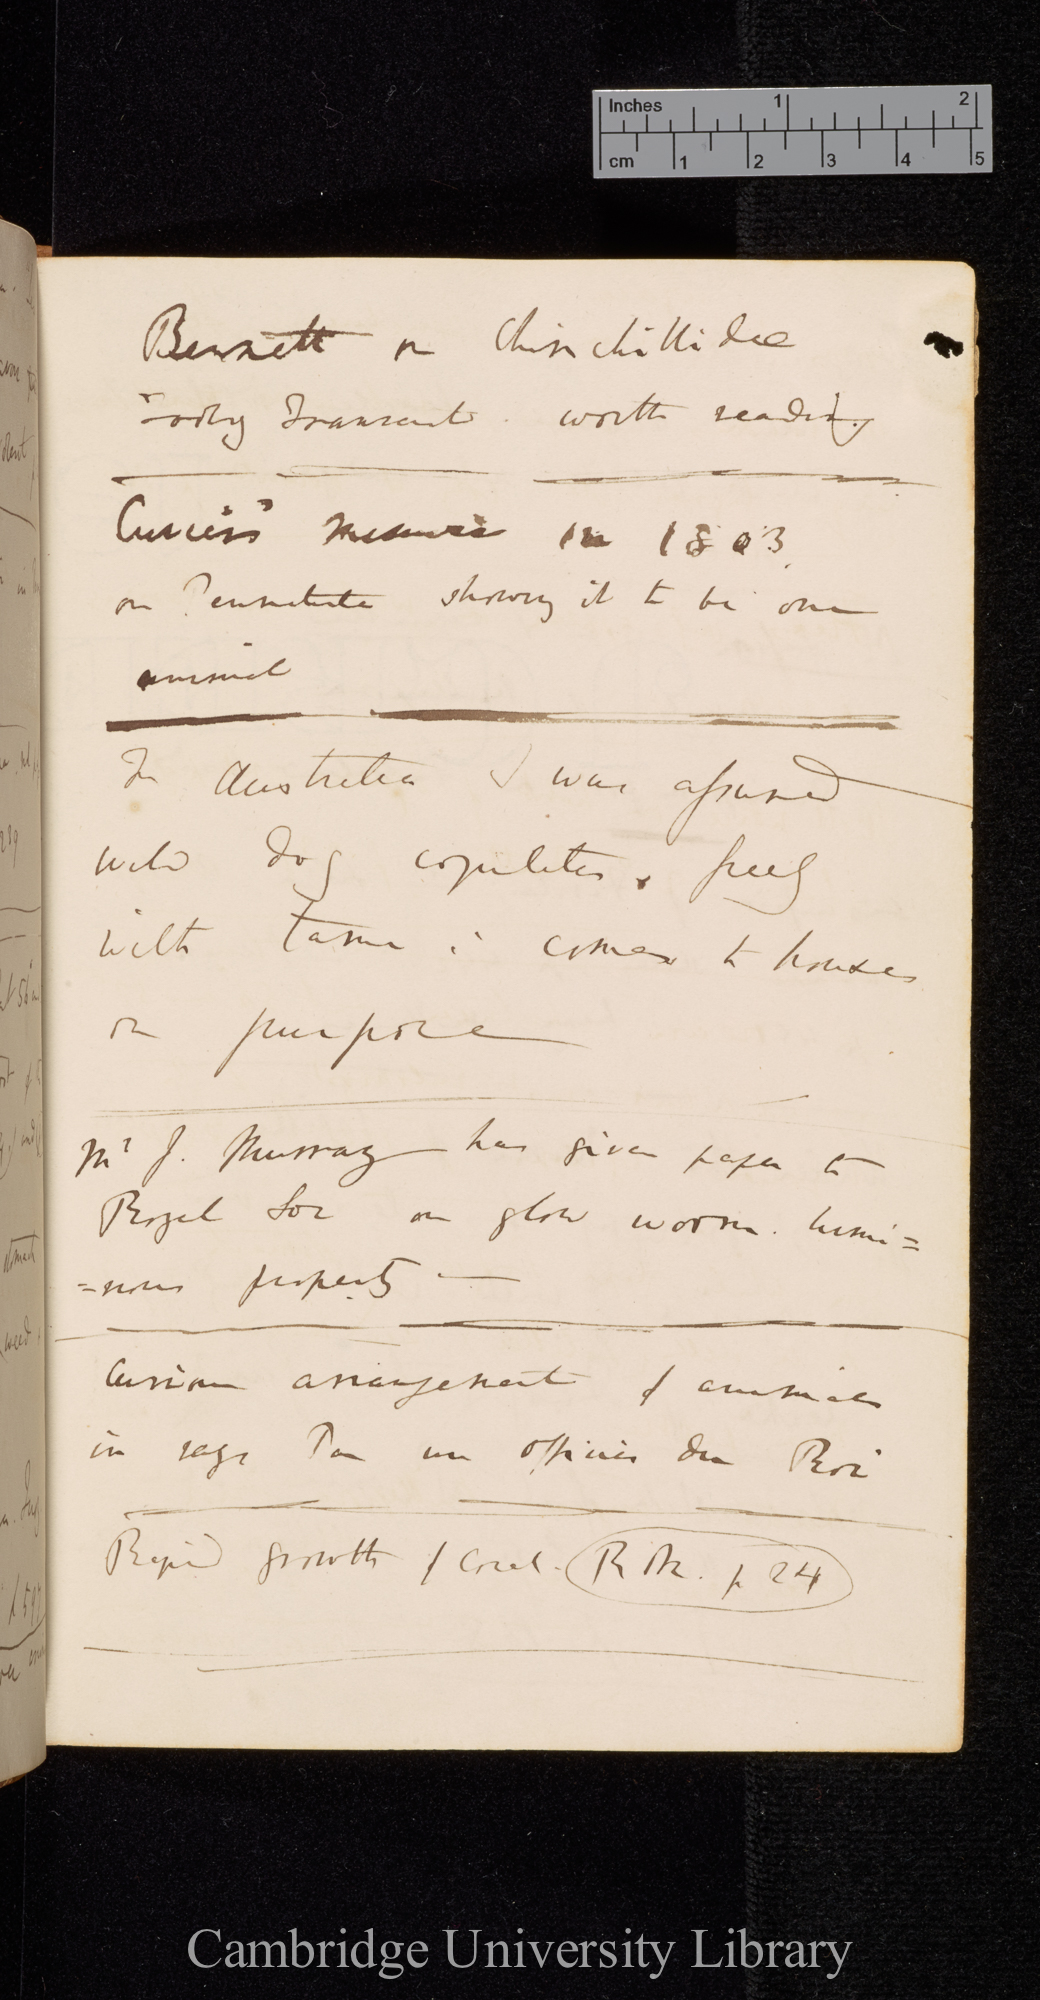 Inches 1 2
cm 1 2 3 4 5
Bennett on Chinchillidae
Zoolog Transact. worth reading
Cuvier's memoir in 1803.
on Pennatula showing it to be one
animal
In Australia I was assured
wild dog copulates freely
with tame & comes to houses
on purpose
Mr J. Murray has given paper to
Royal Soc on glow worm. lumi=
=nous property —
Curious arrangement of animals
in voyage Par un officier du Roi
Rapid growth of Coral. R.N. p 24
Cambridge University Library